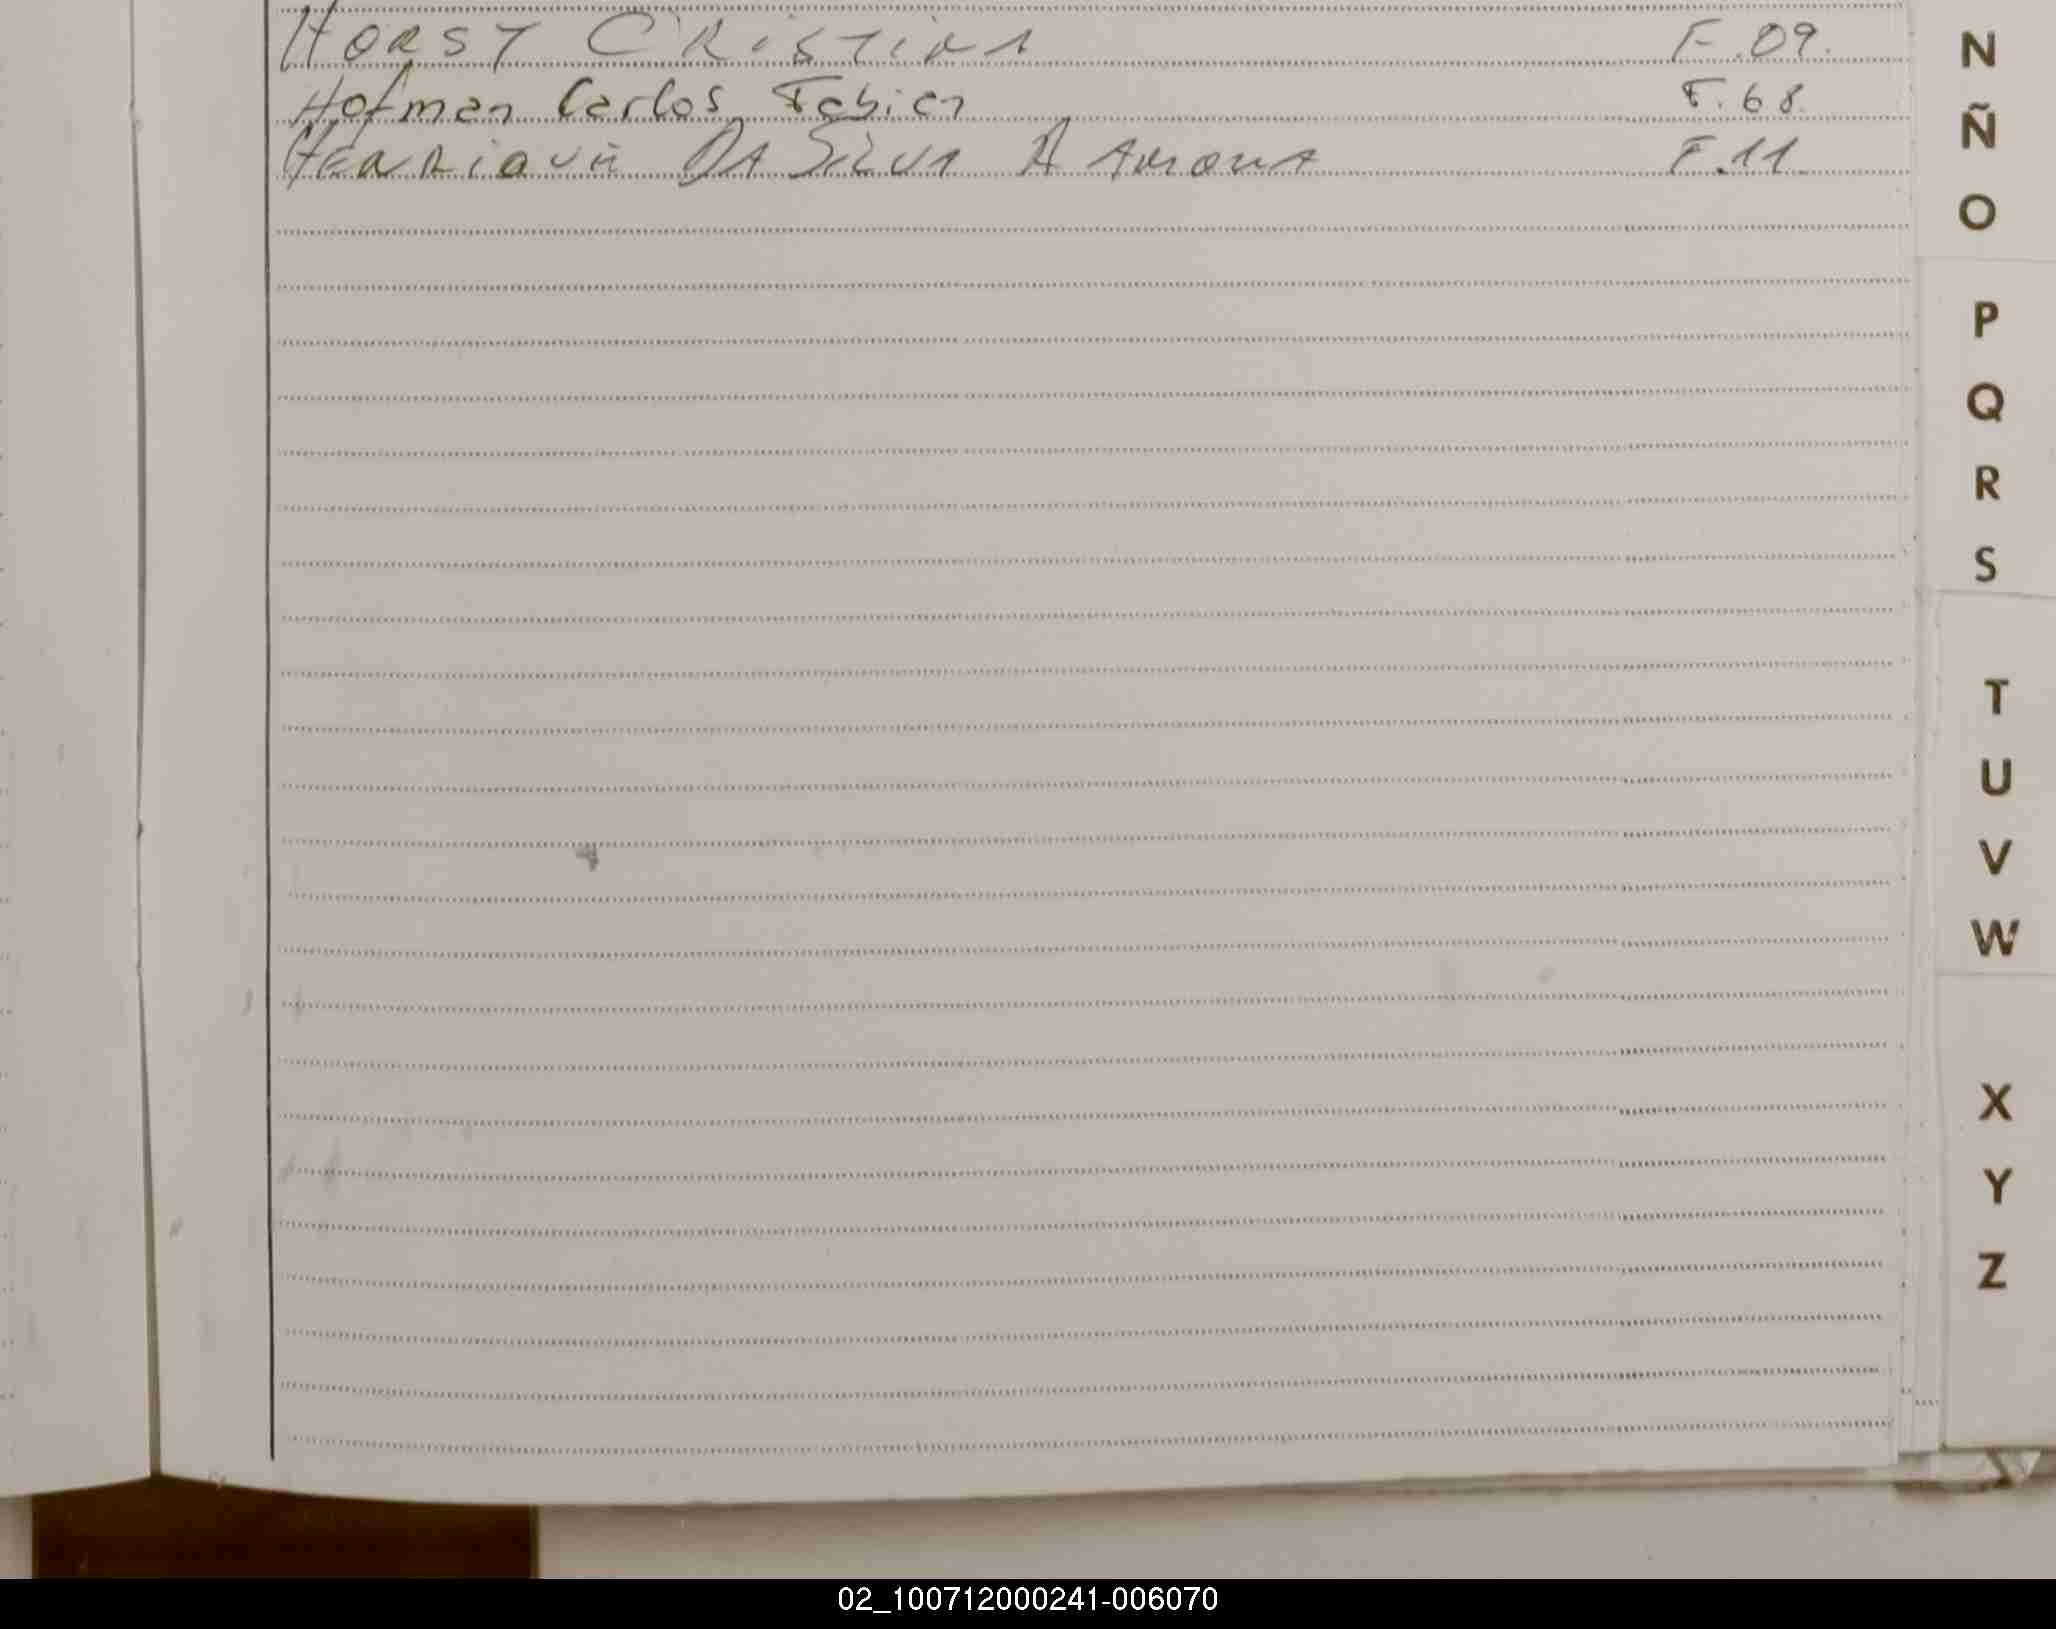 HORST CRISTINA F.09.
Hofman Carlos Fabian F.68.
HENRIQUE DA SILVA A F.11.
N
Ñ
O
P
Q
R
S
T
U
V
W
X
Y
Z
02_100712000241-006070